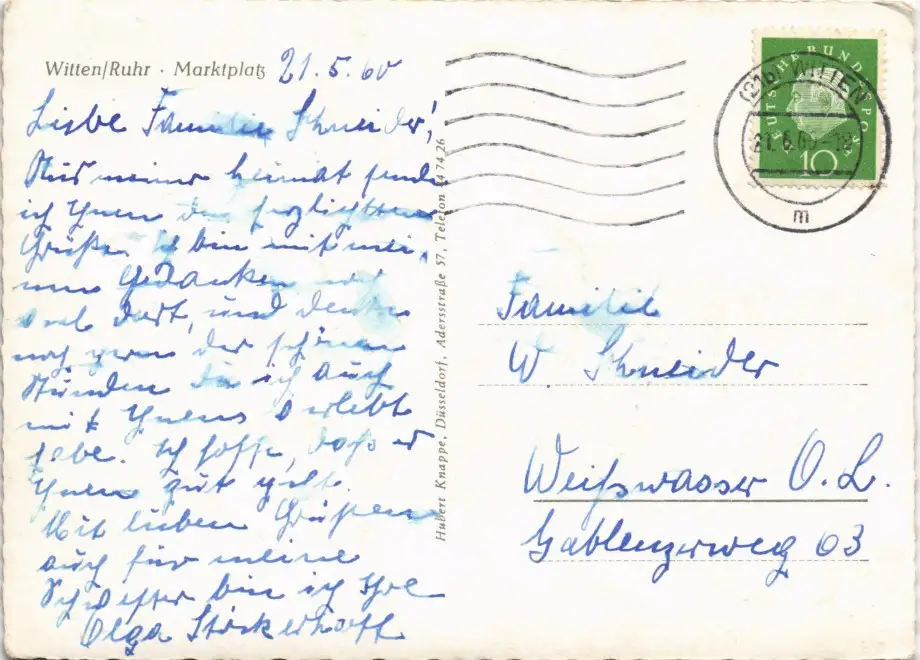 Witten/Ruhr · Marktplatz 21.5.60
Liebe Familie Schneider!
Aus meiner Heimat sende
ich Ihnen die herzlichsten
Grüße. Ich bin mit mei,
nen Gedanken noch
viel dort, und denke
noch gern der schönen
Stunden da ich auch
mit Ihnen verlebt
habe. Ich hoffe, dass es
Ihnen gut geht.
Mit lieben Grüßen
auch für meine
Schwester bin ich Ihre
Olga Störkerhoff
Hubert Knappe, Düsseldorf, Adersstraße 57, Telefon 1 74 26
DEUTSCHE BUNDESPOST
10
(21b) WITTEN
21.5.60-18
m
Familie
W. Schneider
Weißwasser O.L.
Gablenzerweg 63